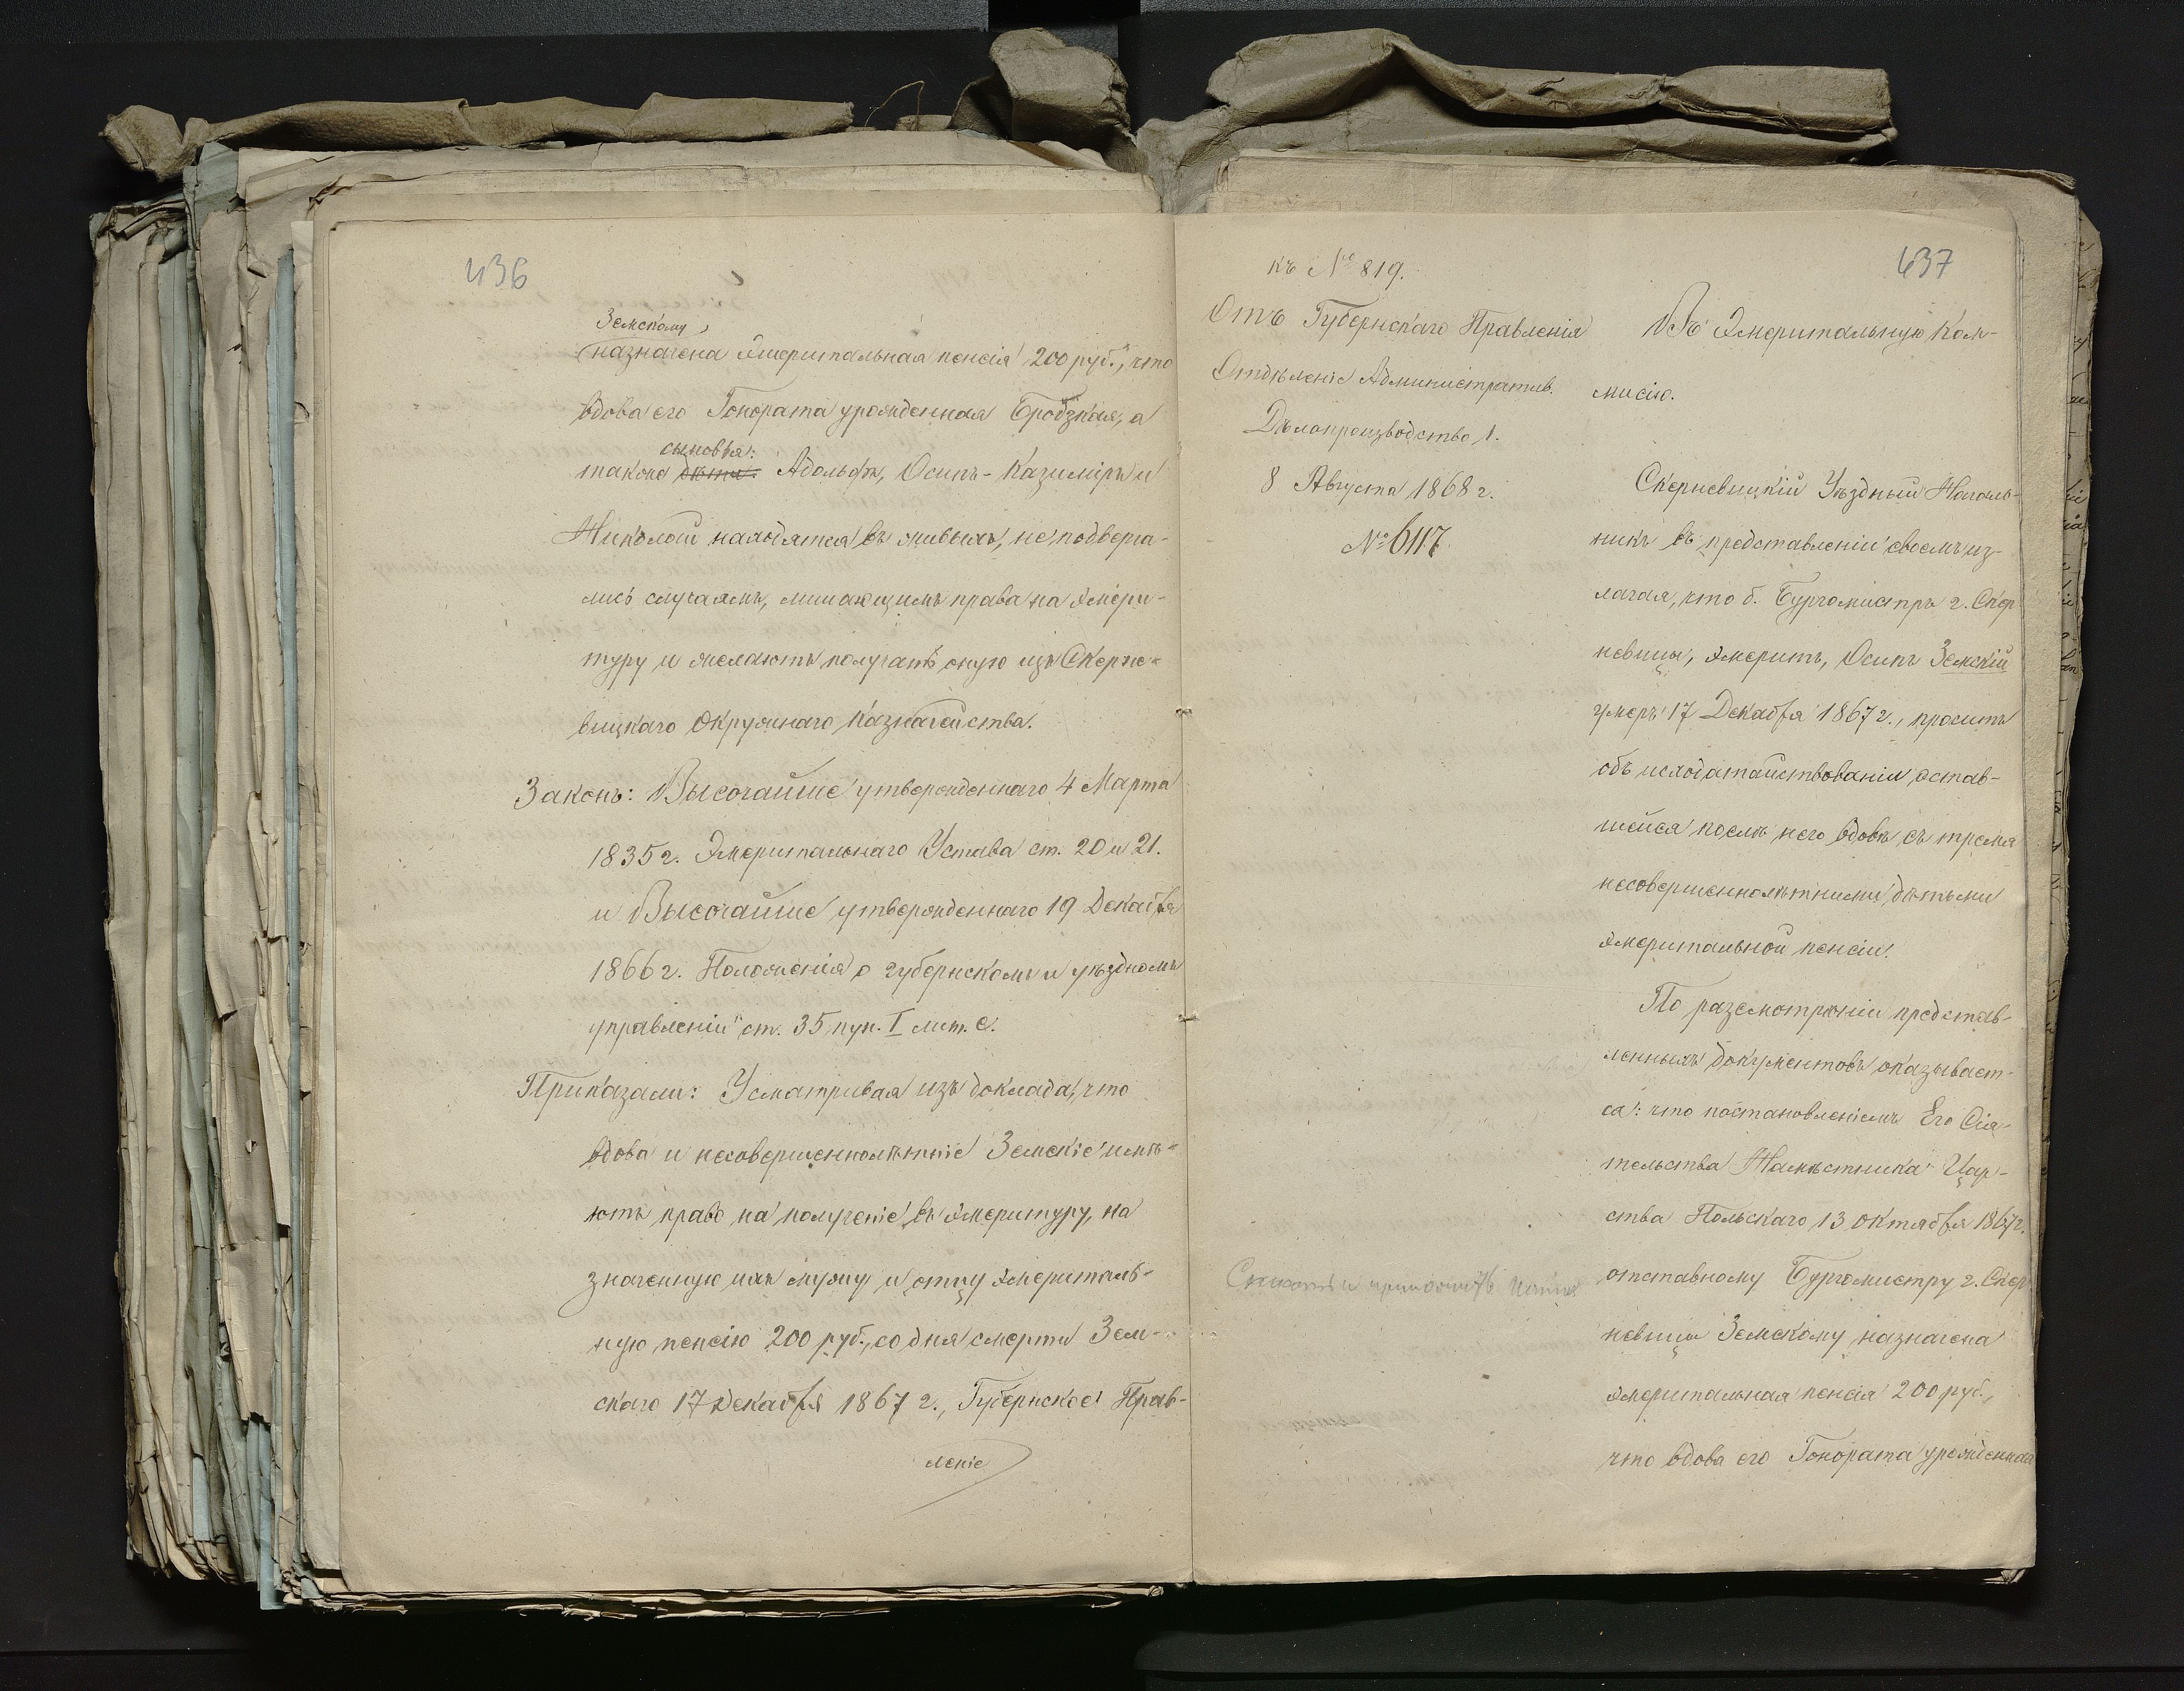 436
Земскому,
назначена эмеритальная пенсія 200 руб., что
вдова его Гонората урожденная Бродзкая, а
сыновья:
также дѣти: Адольфъ, Осипъ-Казиміръ и
Николай находятся въ живыхъ, не подверга-
лись случаямъ, лишающимъ права на эмери-
туру и желаютъ получать оную изъ Скерне-
вицкаго Окружнаго Казначейства.
Законъ: Высочайше утвержденнаго 4 Марта
1835 г. Эмеритальнаго Устава ст. 20 и 21.
и Высочайше утвержденнаго 19 Декабря
1866 г. Положенія о губернскомъ и уѣздномъ
управленіи ст. 35 пун. I лит. е.
Приказали: Усматривая изъ доклада, что
вдова и несовершеннолѣтніе Земскіе имѣ-
ютъ право на полученіе въ эмеритуру, на
значенную ихъ мужу и отцу эмериталь-
ную пенсію 200 руб., со дня смерти Зем-
скаго 17 Декабря 1867 г., Губернское Прав-
леніе
437
къ № 819.
Отъ Губернскаго Правленія
Отдѣленіе Административ.
Дѣлопроизводство 1.
8 Августа 1868 г.
№ 6117.
Въ Эмеритальную Ком-
мисію.
Скерневицкій Уѣздный Началь-
никъ въ представленіи своемъ из-
лагая, что б. Бургомистръ г. Скер
невицы, эмеритъ, Осипъ Земскій
умеръ 17 Декабря 1867 г., проситъ
объ исходатайствованіи остав-
шейся послѣ него вдовѣ съ тремя
несовершеннолѣтними дѣтьми
эмеритальной пенсіи.
По разсмотрѣніи представ-
ленныхъ документовъ оказывает-
ся: что постановленіемъ Его Сія-
тельства Намѣстника Цар-
ства Польскаго 13 Октября 1867 г.
отставному Бургомистру г. Скер
невицы Земскому назначена
эмеритальная пенсія 200 руб.,
что вдова его Гонората урожденная